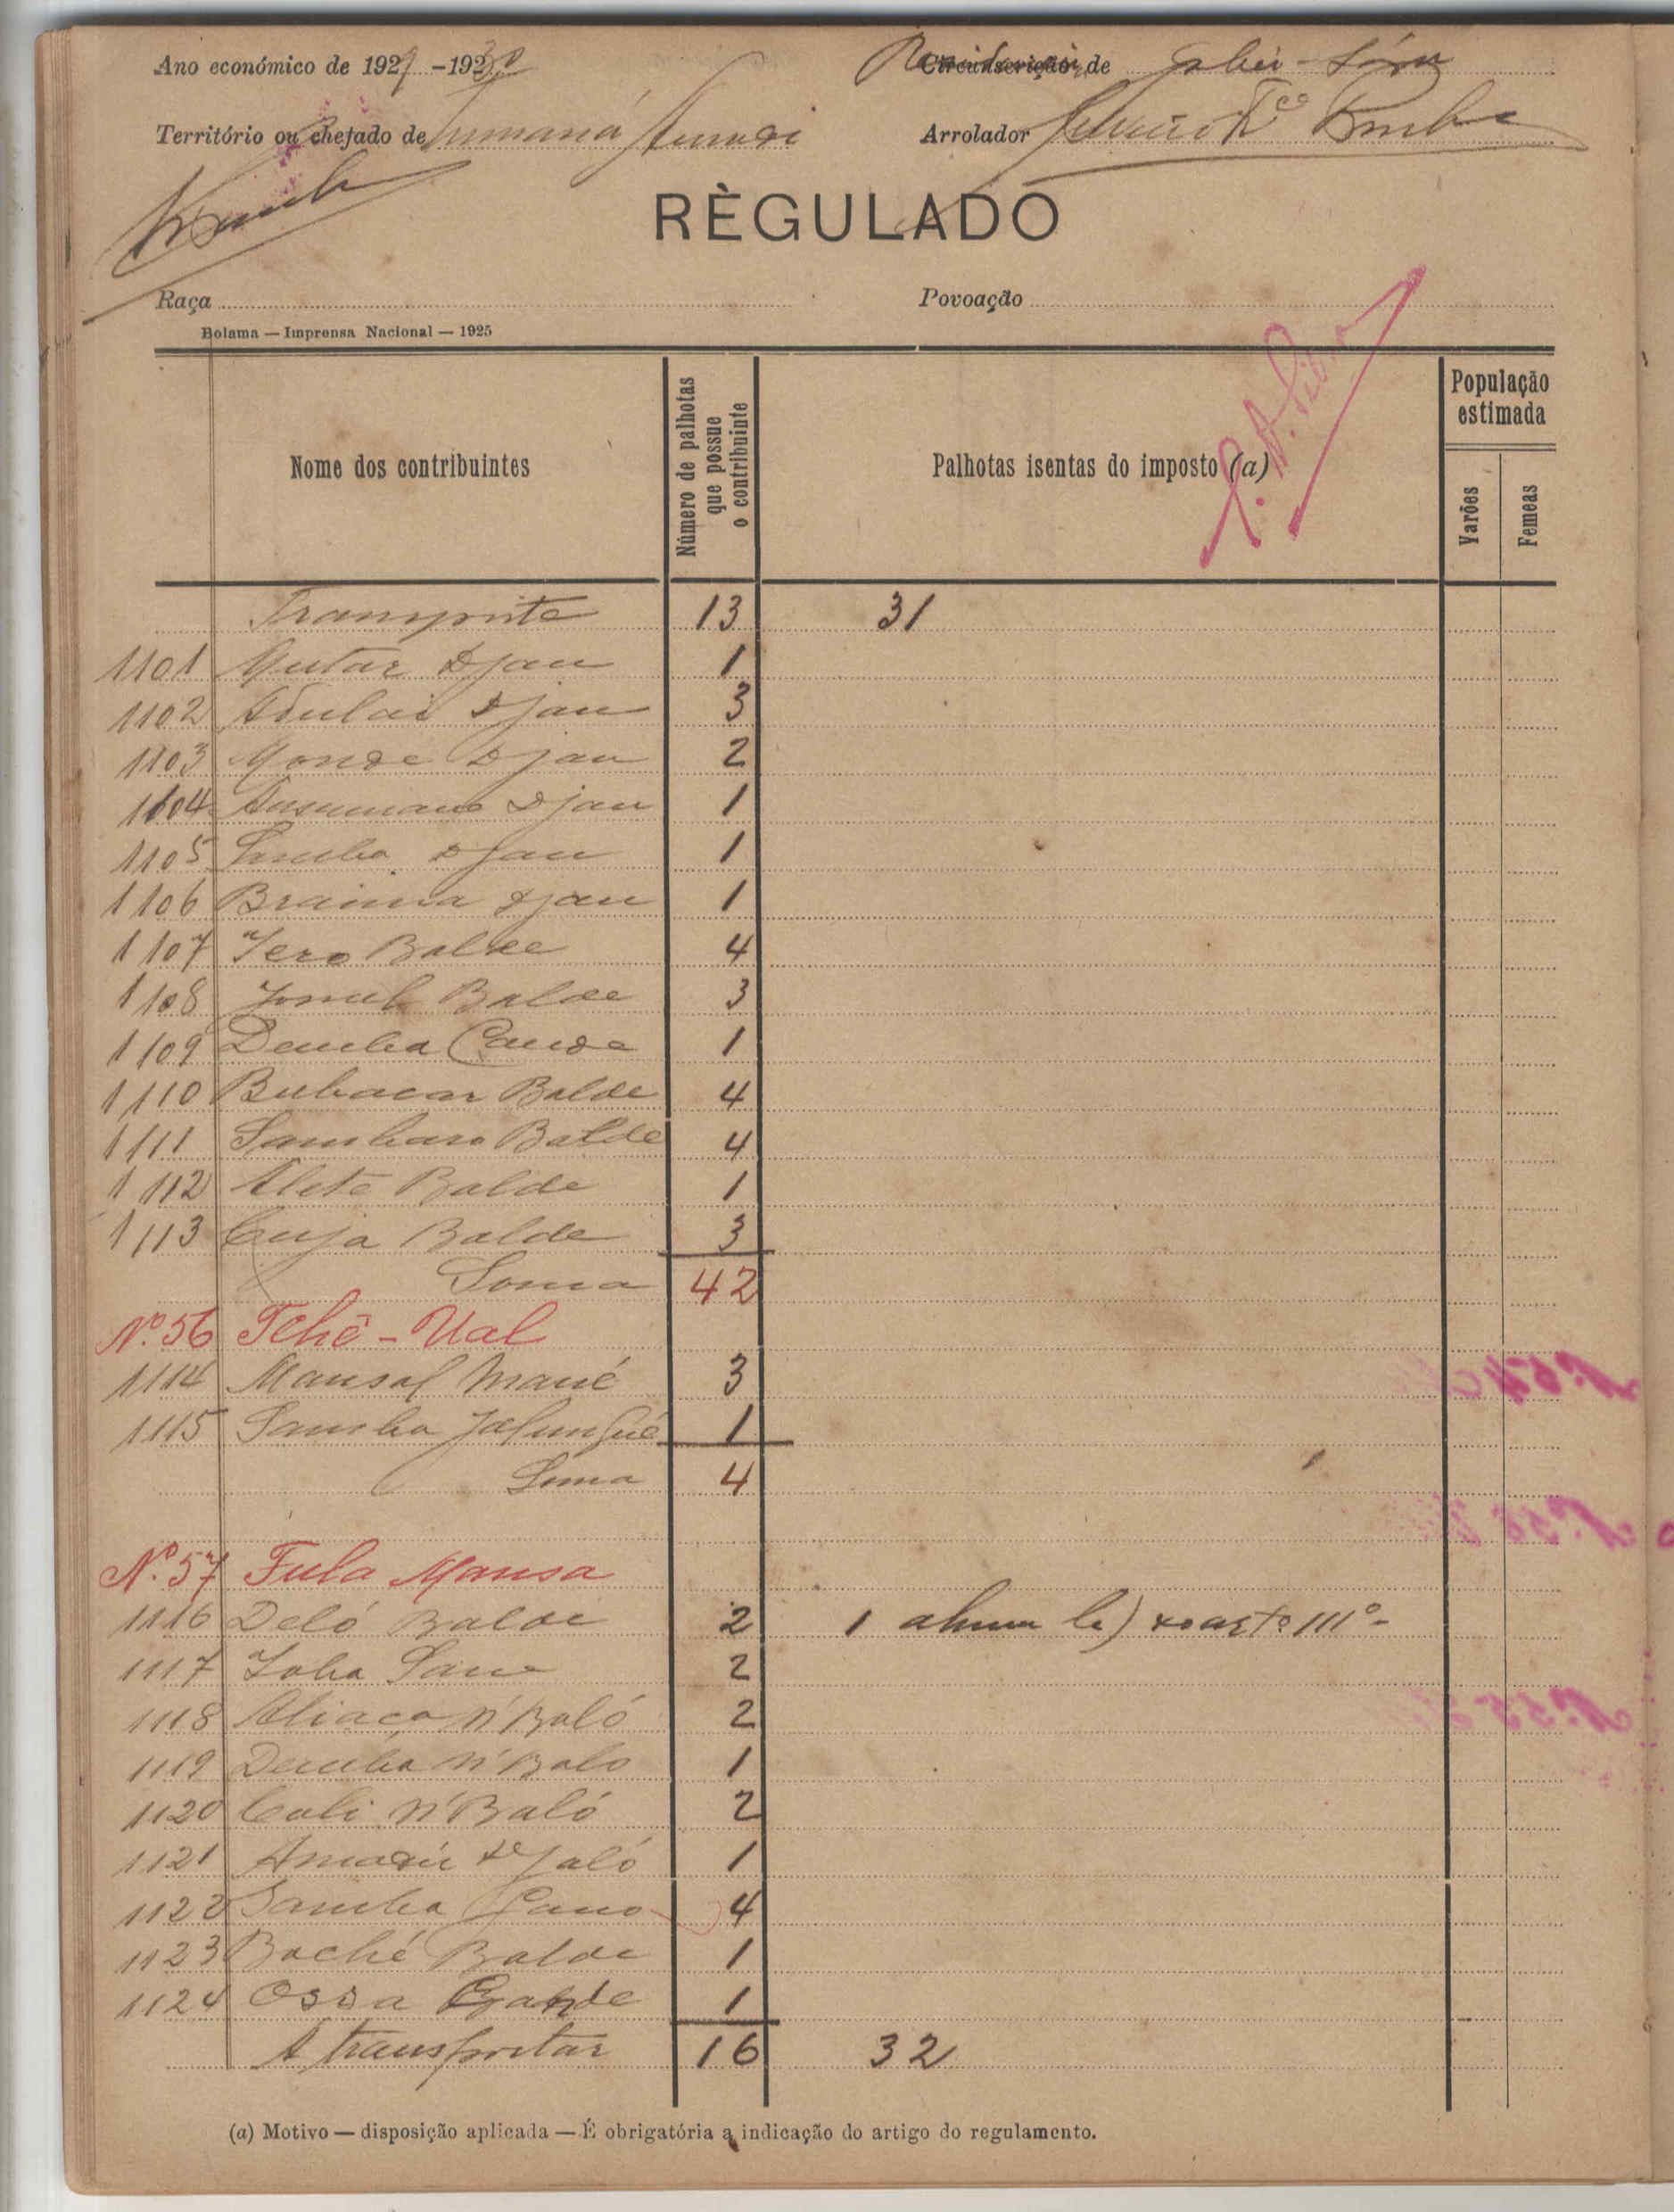 Ano económico de 1929-1930 de Gabú-Sára
Território ou chefado de Tumaná Arrolador
RÈGULADO
Raça Povoação
Bolama — Imprensa Nacional — 1925
Nome dos contribuintes Número de palhotas que possue o contribuinte Palhotas isentas do imposto (a) População estimada Varões Femeas
Transporte 13 31
1101 Mutar Djau 1
1102 Adulai Djau 3
1103 Monde Djau 2
1104 Ansumane Djau 1
1105 Djau 1
1106 Braima Djau 1
1107 Jero Balde 4
1108 Balde 3
1109 Demba Cande 1
1110 Bubacar Balde 4
1111 Sambaro Balde 4
1112 Balde 1
1113 Cuja Balde 3
Soma 42
Nº 56 Tchê-Ual
1114 Mansal Mané 3
1115 Samba 1
Soma 4
Nº 57 Fula Mansa
1116 Deló Balde 2 1 b) do artº 111º-
1117 Joba Sane 2
1118 Aliaca N'Baló 2
1119 Demba N'Balo 1
1120 Cali N'Baló 2
1121 Amadú Djaló 1
1122 Samba Gano 4
1123 Boché Balde 1
1124 Ossa Cande 1
A transportar 16 32
(a) Motivo — disposição aplicada — É obrigatória a indicação do artigo do regulamento.